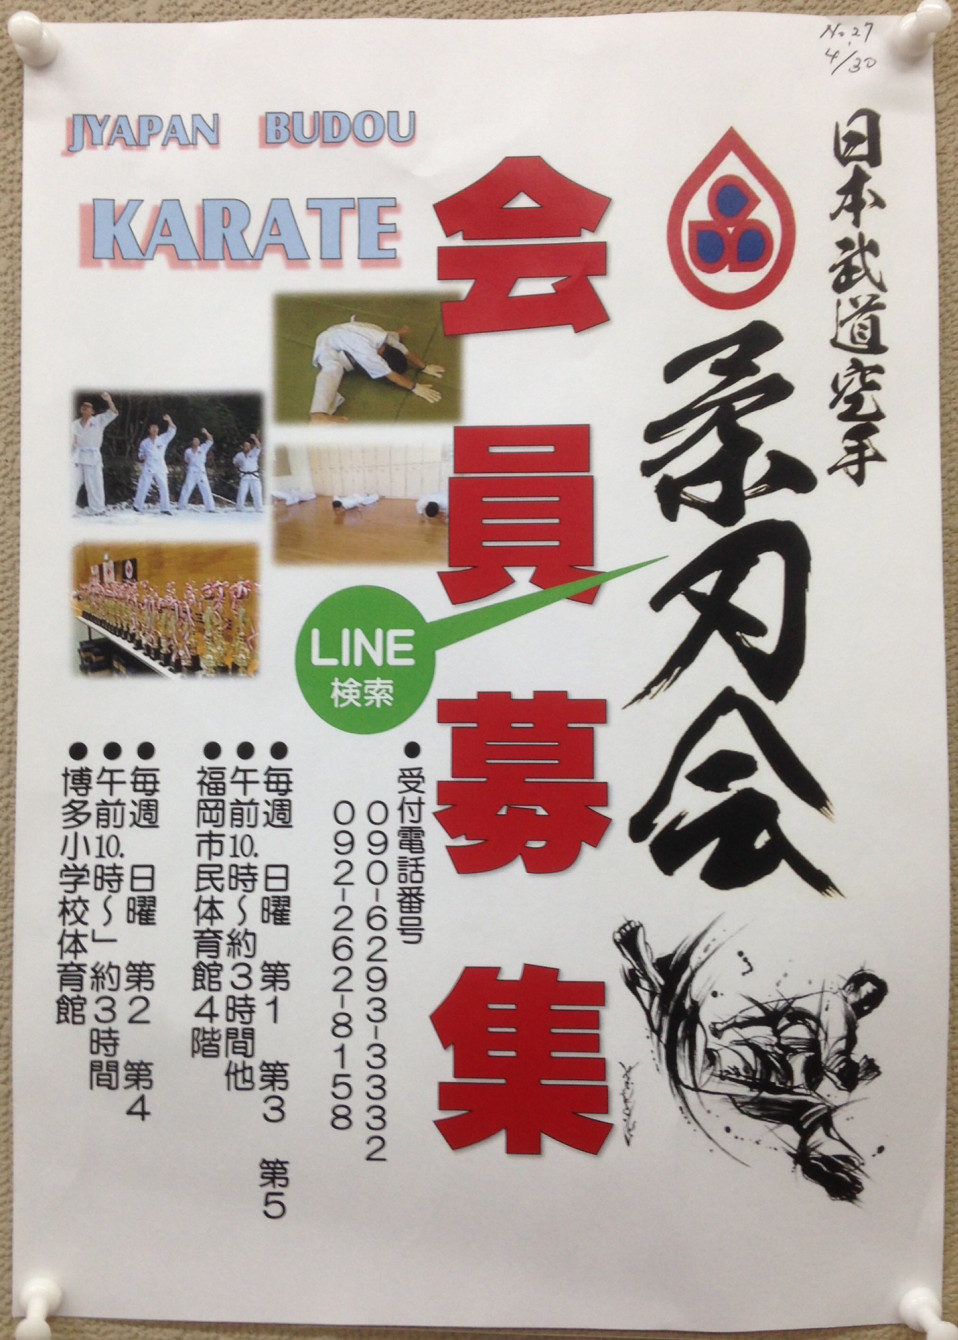 No.27
4/30
日本武道空手
柔刃会
会員募集
JYAPAN BUDOU
KARATE
LINE
検索
●受付電話番号
090-6293-3332
092-262-8158
●毎週 日曜 第1 第3 第5
●午前10.時〜約3時間他
●福岡市民体育館4階
●毎週 日曜 第2 第4
●午前10.時〜」約3時間
●博多小学校体育館